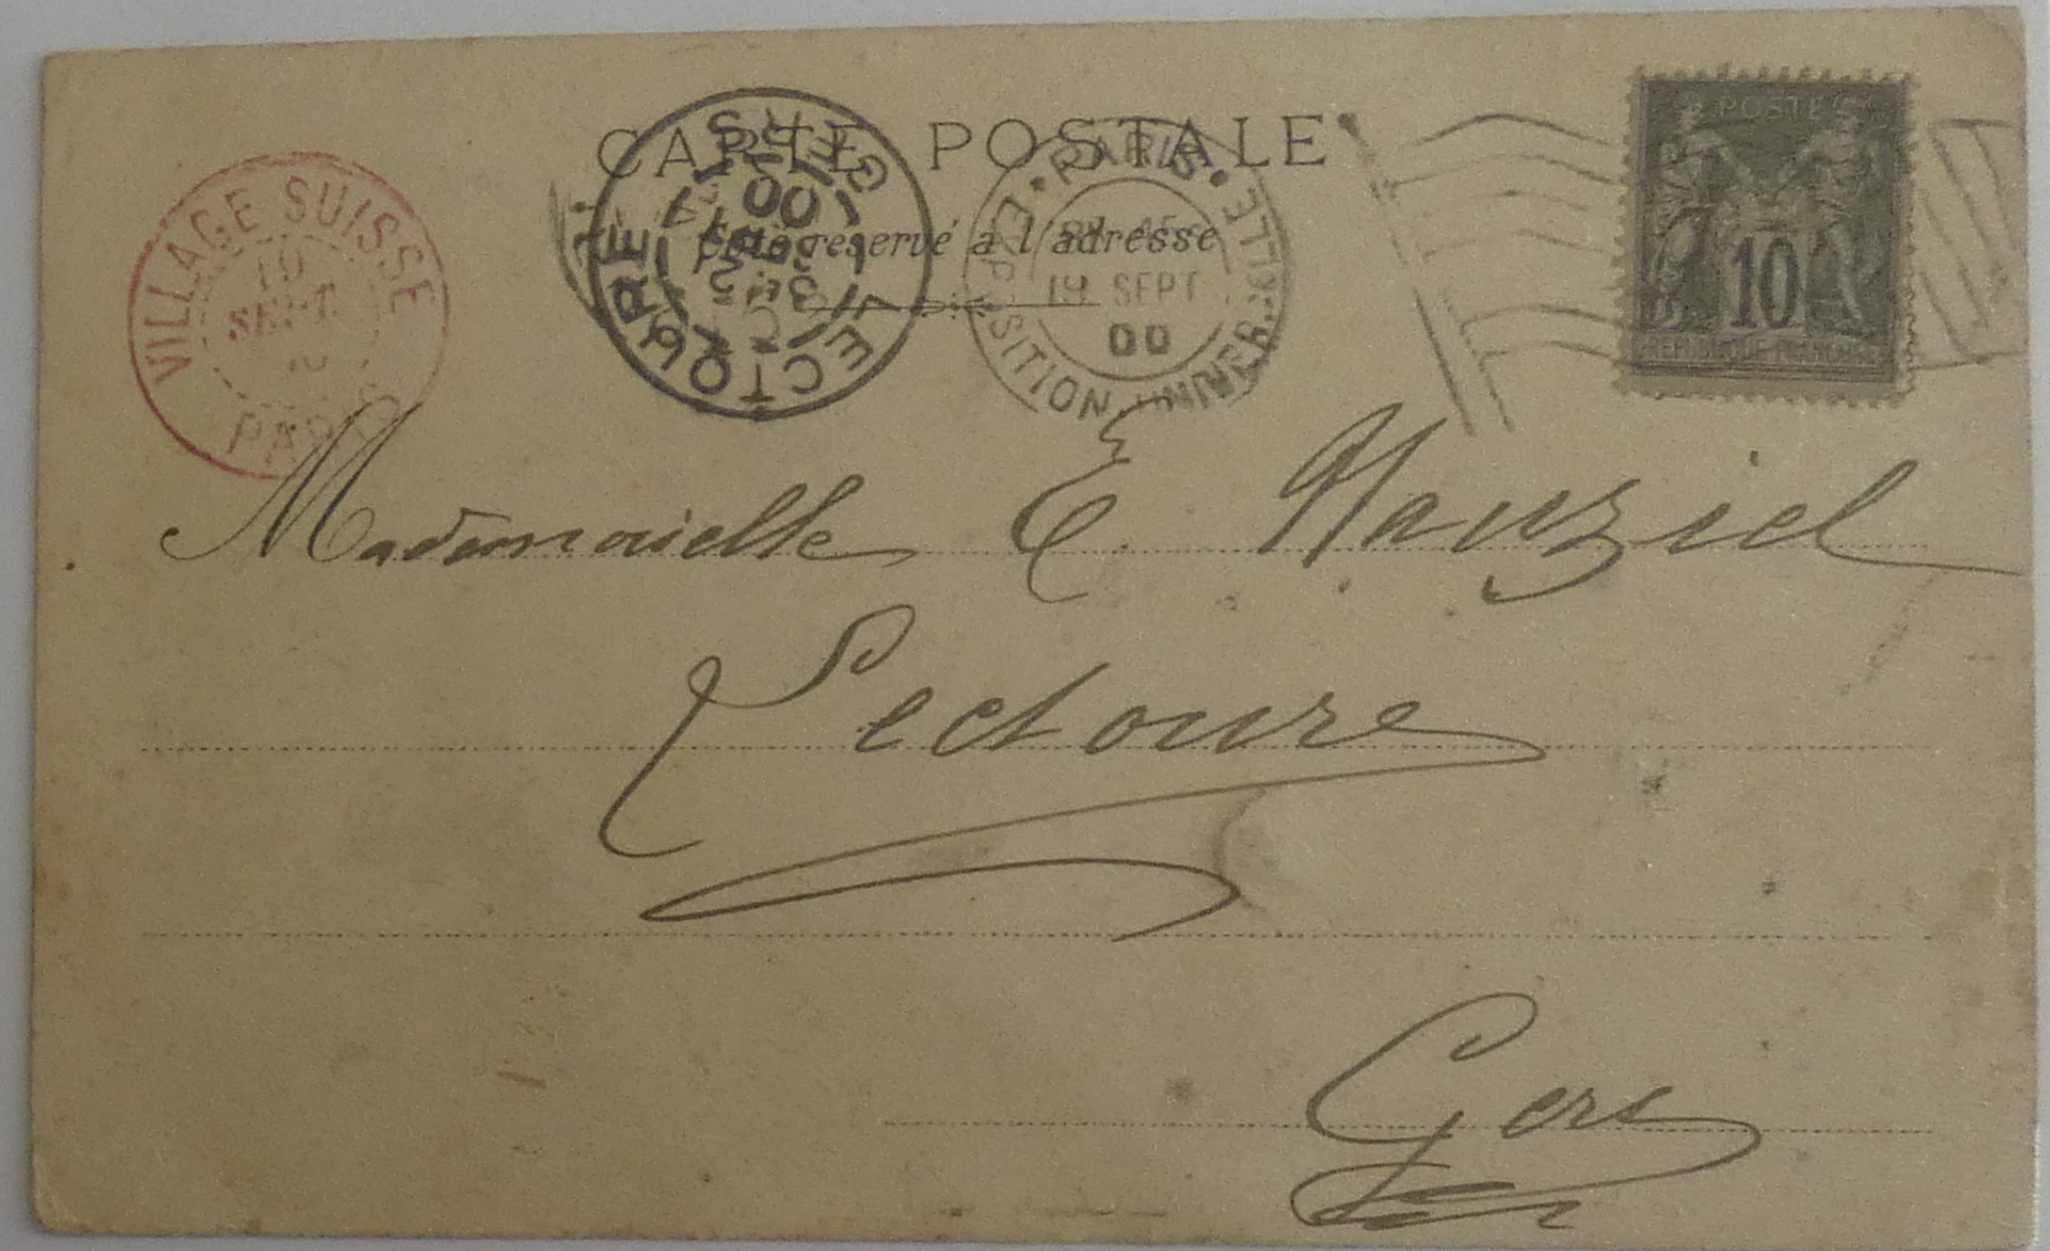 CARTE POSTALE
Côté réservé à l'adresse
VILLAGE SUISSE
19
SEPT.
PARIS
LECTOURE
GERS
00
PARIS
EXPOSITION UNIVERSELLE
19 SEPT
00
POSTES
10
REPUBLIQUE FRANÇAISE
Mademoiselle E Nauziel
Lectoure
Gers